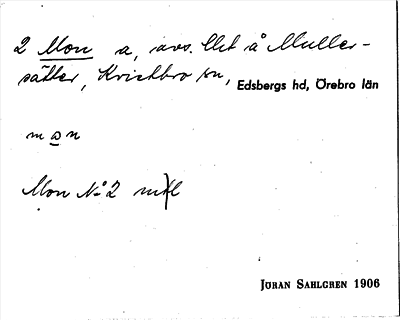 2 Mon a, avs. llet å Muller-
sätter, Kvistbro sn, Edsbergs hd, Örebro län
mon
Mon No 2 mtl
JÖRAN SAHLGREN 1906